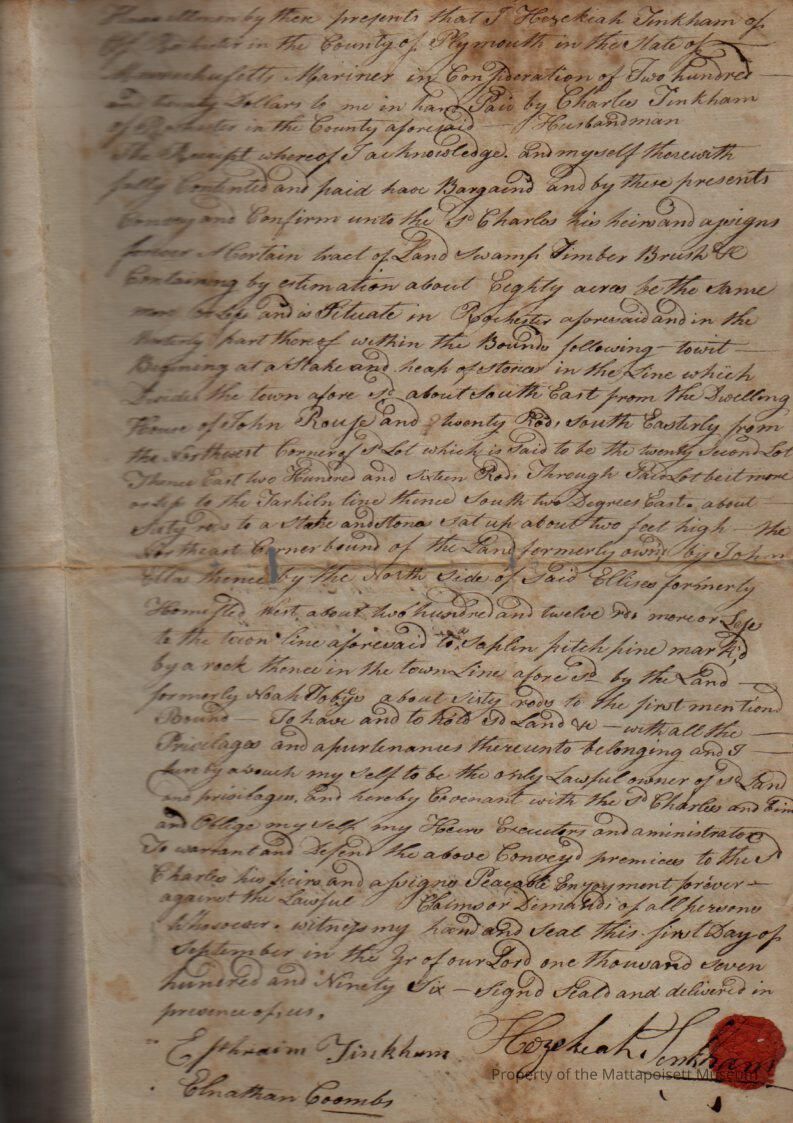 Know all men by these presents that I Hezekiah Tinkham of
Rochester in the County of Plymouth in the State of
Massachusetts Mariner in Consideration of Two hundred
and twenty Dollars to me in hand Paid by Charles Tinkham
of Rochester in the County aforesaid Husbandman
The Receipt whereof I acknowledge. and myself therewith
fully Contented and paid have Bargaind and by these presents
Convey and Confirm unto the sd Charles his heirs and assigns
forever A Certain tract of Land Swamp Timber Brush &c
Containing by estimation about Eighty acres be the same
more or Less and is Situate in Rochester aforesaid and in the
part thereof within the Bounds following towit
Begining at a Stake and heap of stones in the Line which
Divides the town afore sd about South East from the Dwelling
House of John Rouse and twenty Rods south Easterly from
the Northwest Corner of sd Lot which is said to be the twenty second Lot
Thence East two Hundred and sixteen Rods Through said Lot be it more
or Less to the Tarkiln line thence South two Degrees East. about
Sixty rods to a Stake and stones sat up about two feet high the
Northeast Corner bound of the Land formerly ownd by John
Ellis thence by the North Side of Said Ellises formerly
Homested West about two hundred and twelve rds more or Less
to the town line aforesaid to Saplin pitch pine mark'd
by a rock thence in the town Line afore sd by the Land
formerly Noah about Sixty rods to the first mentiond
Bound — To have and to hold sd Land &c — with all the
Privilages and apurtenances thereunto belonging and I
hereby avouch my self to be the only Lawful owner of sd Land
and privilages. and hereby Covenant with the sd Charles and
and Oblige my self my Heirs Executors and aministrators
To warrant and Defend the above Conveyd premices to the sd
Charles his heirs and assigns Peacable Enjoyment forever
against the Lawful Claims or Demands of all persons
Whosoever. witness my hand and Seal this first Day of
September in the Yr of our Lord one thousand seven
hundred and Ninety Six — Signd Seald and delivered in
presence of us.
Ephraim Tinkham Hezekiah Tinkham
Property of the Mattapoisett Museum
Elnathan Coombs